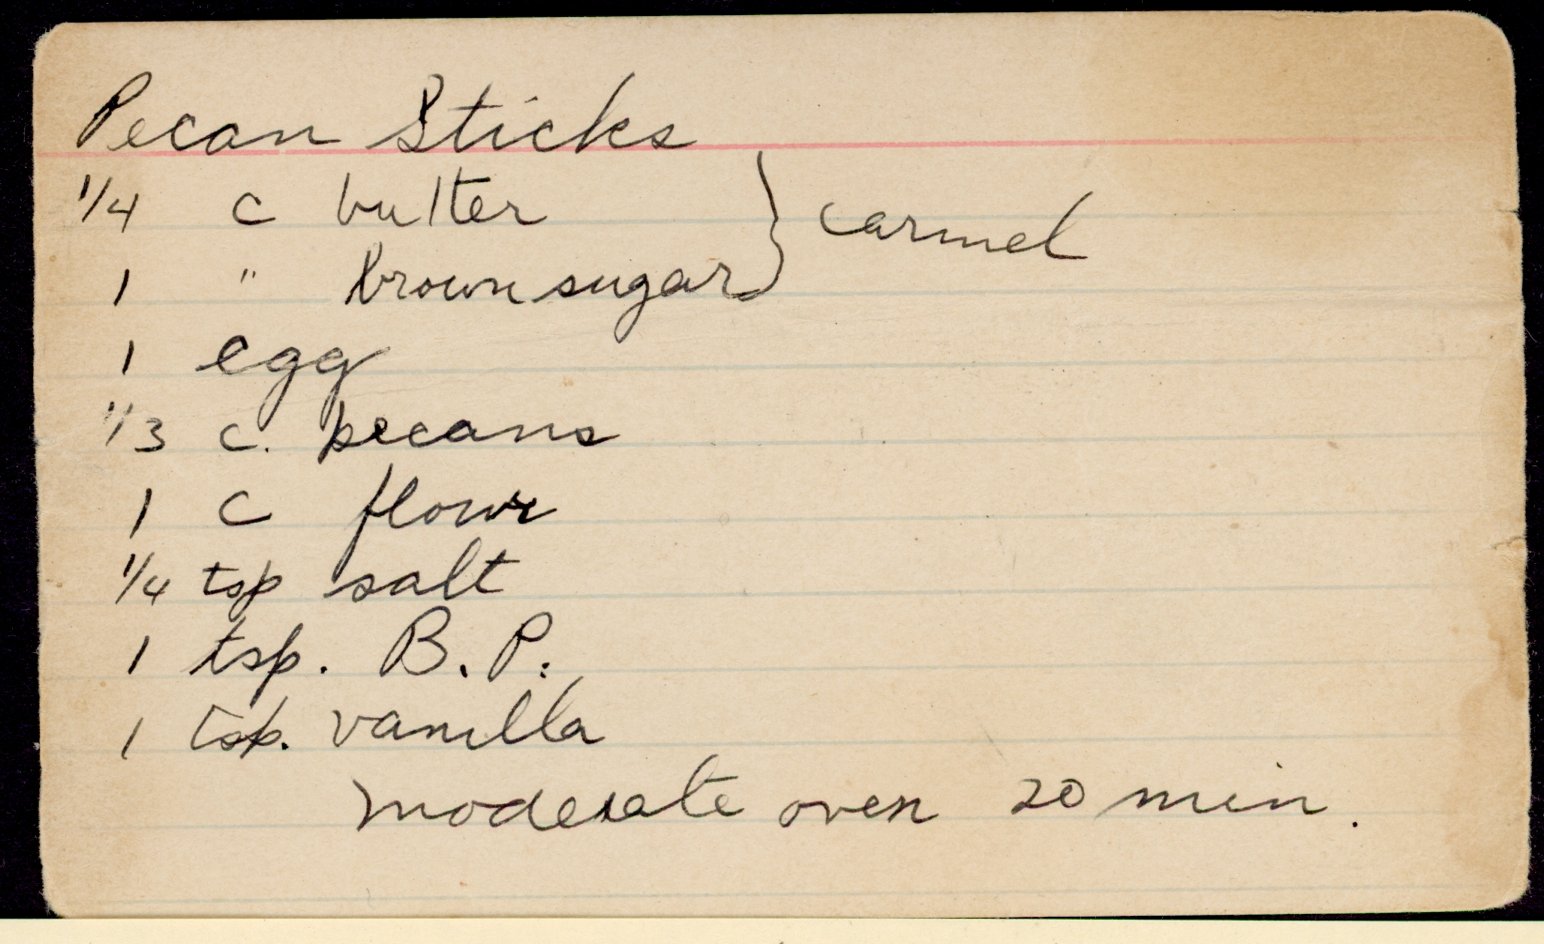 Pecan Sticks
1/4 c butter } carmel
1 " brown sugar
1 egg
1/3 c. pecans
1 c flour
1/4 tsp salt
1 tsp. B.P.
1 tsp. vanilla
moderate oven 20 min.